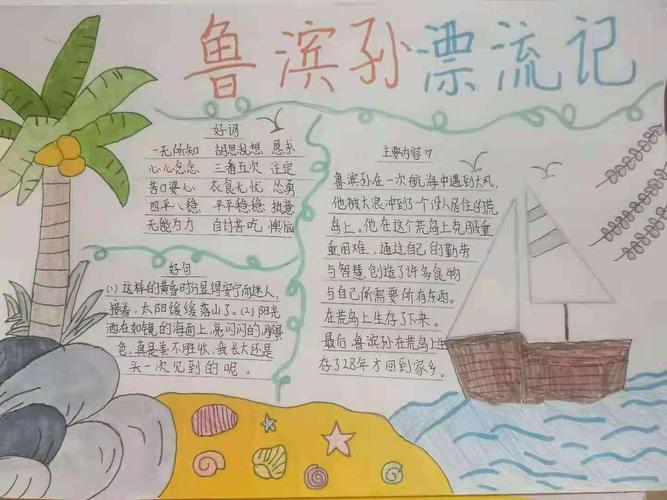 鲁滨孙漂流记
好词
一无所知 胡思乱想 恳求
心心念念 三番五次 注定
苦口婆心 衣食无忧 怂勇
四平八稳 平平稳稳 执意
无能为力 自讨苦吃 懊恼
好句
(1) 这样的黄昏时分显得安宁而迷人,
接着,太阳缓缓落山了。(2) 阳光
洒在如镜的海面上,亮闪闪的,
色,真是美不胜收,我长大还是
头一次见到的呢。
主要内容
鲁滨孙在一次航海中遇到大风,
他被大浪冲到了个没人居住的荒
岛上。他在这个荒岛上克服重
重困难,通过自己的勤劳
与智慧创造了许多食物
与自己所需要所有东西。
在荒岛上生存了下来。
最后,鲁滨孙在荒岛上生
存了28年才回到家乡。